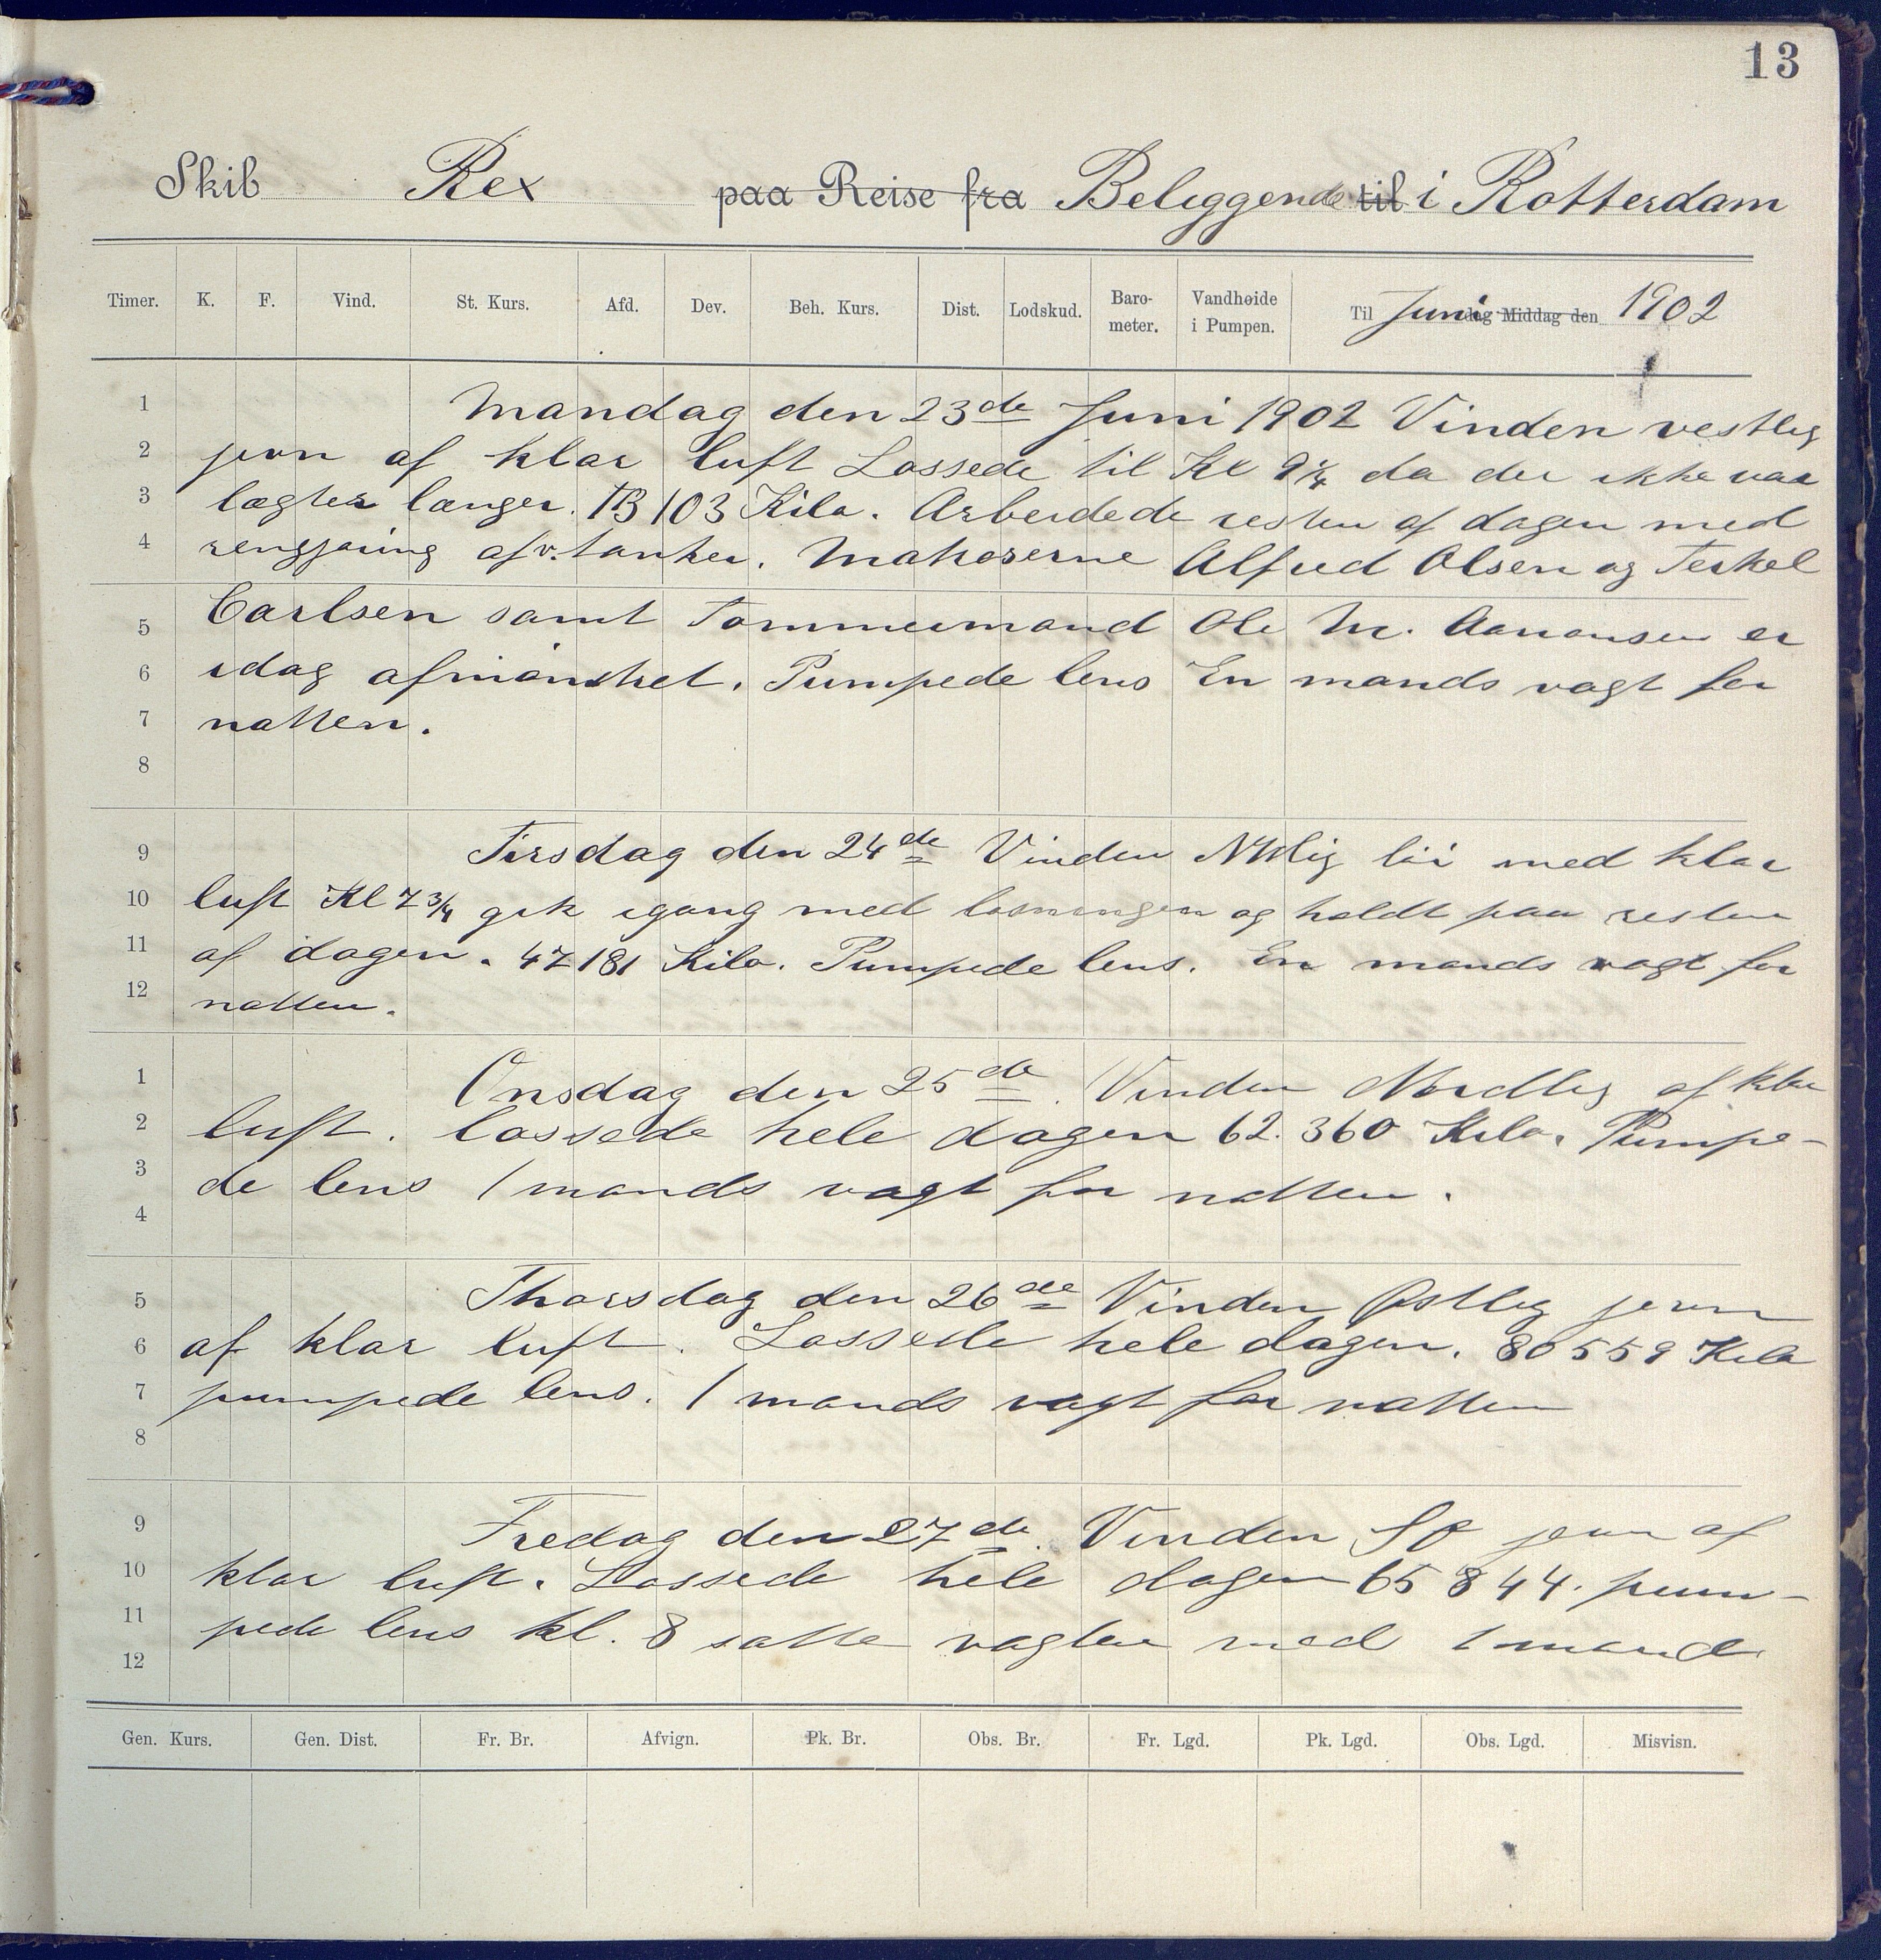 13
Skib Rex paa Reise fra Beliggende til i Rotterdam
Timer. K. F. Vind. St. Kurs. Afd. Dev. Beh. Kurs. Dist. Lodskud. Baro-meter. Vandhøide i Pumpen. Til Juni dag Middag den 1902
1 Mandag den 23de Juni 1902 Vinden vestlig
2 jevn af klar luft Lossede til Kl 9¼ da der ikke var
3 lægter længer. 103 Kilo. Arbeidede resten af dagen med
4 rengjøring af v. tanker. Matroserne Alfred Olsen og Terkel
5 Carlsen samt Tømmermand Ole M. Aanonsen er
6 idag afmønstret. Pumpede lens En mands vagt for
7 natten.
8
9 Tirsdag den 24de Vinden NVlig lii med klar
10 luft Kl 7¾ gik igang med losningen og holdt paa resten
11 af dagen. 47181 Kilo. Pumpede lens. En mands vagt for
12 natten.
1 Onsdag den 25de. Vinden Nordlig af klar
2 luft. lossede hele dagen 62.360 Kilo. Pumpe-
3 de lens 1 mands vagt for natten.
4
5 Thorsdag den 26de Vinden Østlig jevn
6 af klar luft. Lossede hele dagen. 80559 Kilo
7 pumpede lens. 1 mands vagt for natten
8
9 Fredag den 27de. Vinden SO jevn af
10 klar luft. Lossede hele dagen 65844. pum-
11 pede lens kl. 8 satte vagten med 1 mand.
12
Gen. Kurs. Gen. Dist. Fr. Br. Afvign. Pk. Br. Obs. Br. Fr. Lgd. Pk. Lgd. Obs. Lgd. Misvisn.